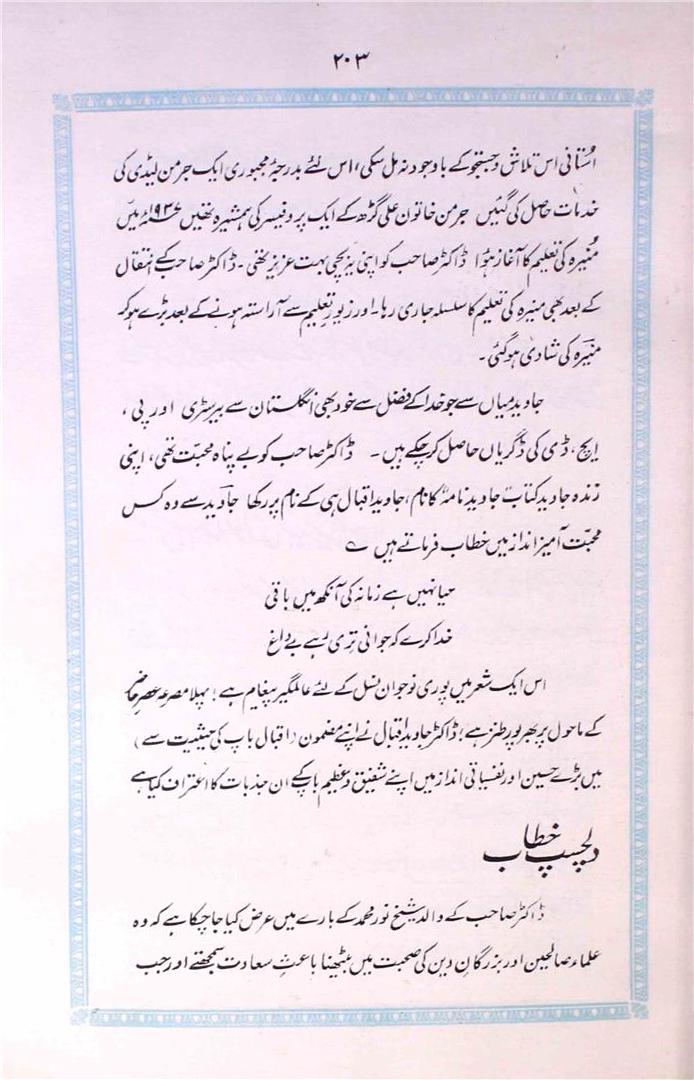 ۲۰۳
اُستانی اس تلاش و جستجو کے باوجود نہ مل سکی، اس لئے بدرجۂ مجبوری ایک جرمن لیڈی کی
خدمات حاصل کی گئیں جرمن خاتون علی گڑھ کے ایک پروفیسر کی ہمشیرہ تھیں ۱۹۳۷ء میں
مُنیرہ کی تعلیم کا آغاز ہوُا ڈاکٹر صاحب کو اپنی یہ بچی بہت عزیز تھی۔ ڈاکٹر صاحب کے انتقال
کے بعد بھی منیرہ کی تعلیم کا سلسلہ جاری رہا۔ اور زیورِ تعلیم سے آراستہ ہونے کے بعد بڑے ہو کر
منیرہ کی شادی ہو گئی۔
جاوید میاں سے جو خدا کے فضل سے خود بھی انگلستان سے بیرسٹری اور پی،
ایچ، ڈی کی ڈگریاں حاصل کر چکے ہیں۔ ڈاکٹر صاحب کو بے پناہ محبّت تھی، اپنی
زندہ جاوید کتاب "جاوید نامہ" کا نام، جاوید اقبال ہی کے نام پر رکھا جاوید سے وہ کس
محبّت آمیز انداز میں خطاب فرماتے ہیں ؎
حیا نہیں ہے زمانہ کی آنکھ میں باقی
خدا کرے کہ جوانی تری رہے بے داغ
اس ایک شعر میں پوری نوجوان نسل کے لئے عالمگیر پیغام ہے؛ پہلا مصرعہ عصرِ حاضر
کے ماحول پر بھر پور طنز ہے؛ ڈاکٹر جاوید اقبال نے اپنے مضمون (اقبال باپ کی حیثیت سے)
میں بڑے حسین اور نفسیاتی انداز میں اپنے شفیق و عظیم باپ کے ان جذبات کا اعتراف کیا ہے
دلچسپ خطاب
ڈاکٹر صاحب کے والد شیخ نور محمد کے بارے میں عرض کیا جا چکا ہے کہ وہ
علماء صالحین اور بزرگانِ دین کی صحبت میں بیٹھینا باعثِ سعادت سمجھتے اور جب